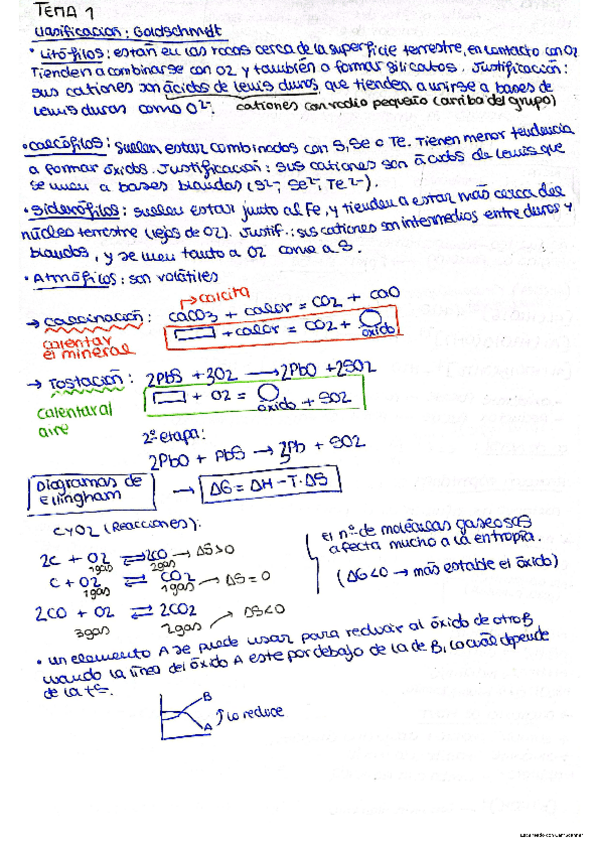 TEMA 1
Clasificacion: Goldschmidt
• Litófilos: están en las rocas cerca de la superficie terrestre, en contacto con O2
Tienden a combinarse con O2 y también a formar silicatos. Justificación:
sus cationes son ácidos de lewis duros, que tienden a unirse a bases de
lewis duras como O2-. cationes con radio pequeño (arriba del grupo)
• Calcófilos: suelen estar combinados con S, Se o Te. Tienen menor tendencia
a formar óxidos. Justificación: sus cationes son ácidos de lewis que
se unen a bases blandas (S2-, Se2-, Te2-).
• Siderófilos: suelen estar junto al Fe, y tienden a estar más cerca del
núcleo terrestre (lejos de O2). Justif.: sus cationes son intermedios entre duros y
blandos, y se unen tanto a O2 como a S.
• Atmófilos: son volátiles
→ calcita
→ calcinación: CaCO3 + calor = CO2 + CaO
calentar
el mineral
+ calor = CO2 +
óxido
→ Tostación: 2PbS + 3O2 → 2PbO + 2SO2
calentar al
aire
+ O2 =
óxido + SO2
2ª etapa:
2PbO + PbS → 3Pb + SO2
Diagramas de
Ellingham
→ ΔG = ΔH - T·ΔS
C y O2 (Reacciones):
2C + O2 ⇌ 2CO → ΔS>0
1gas 2gas
C + O2 ⇌ CO2 → ΔS = 0
1gas 1gas
2CO + O2 ⇌ 2CO2 → ΔS<0
3gas 2gas
El nº de moléculas gaseosas
afecta mucho a la entropía.
(ΔG<0 → más estable el óxido)
• un elemento A se puede usar para reducir al óxido de otro B
cuando la línea del óxido A este por debajo de la de B, lo cuál depende
de la tª.
B
A
↑ lo reduce